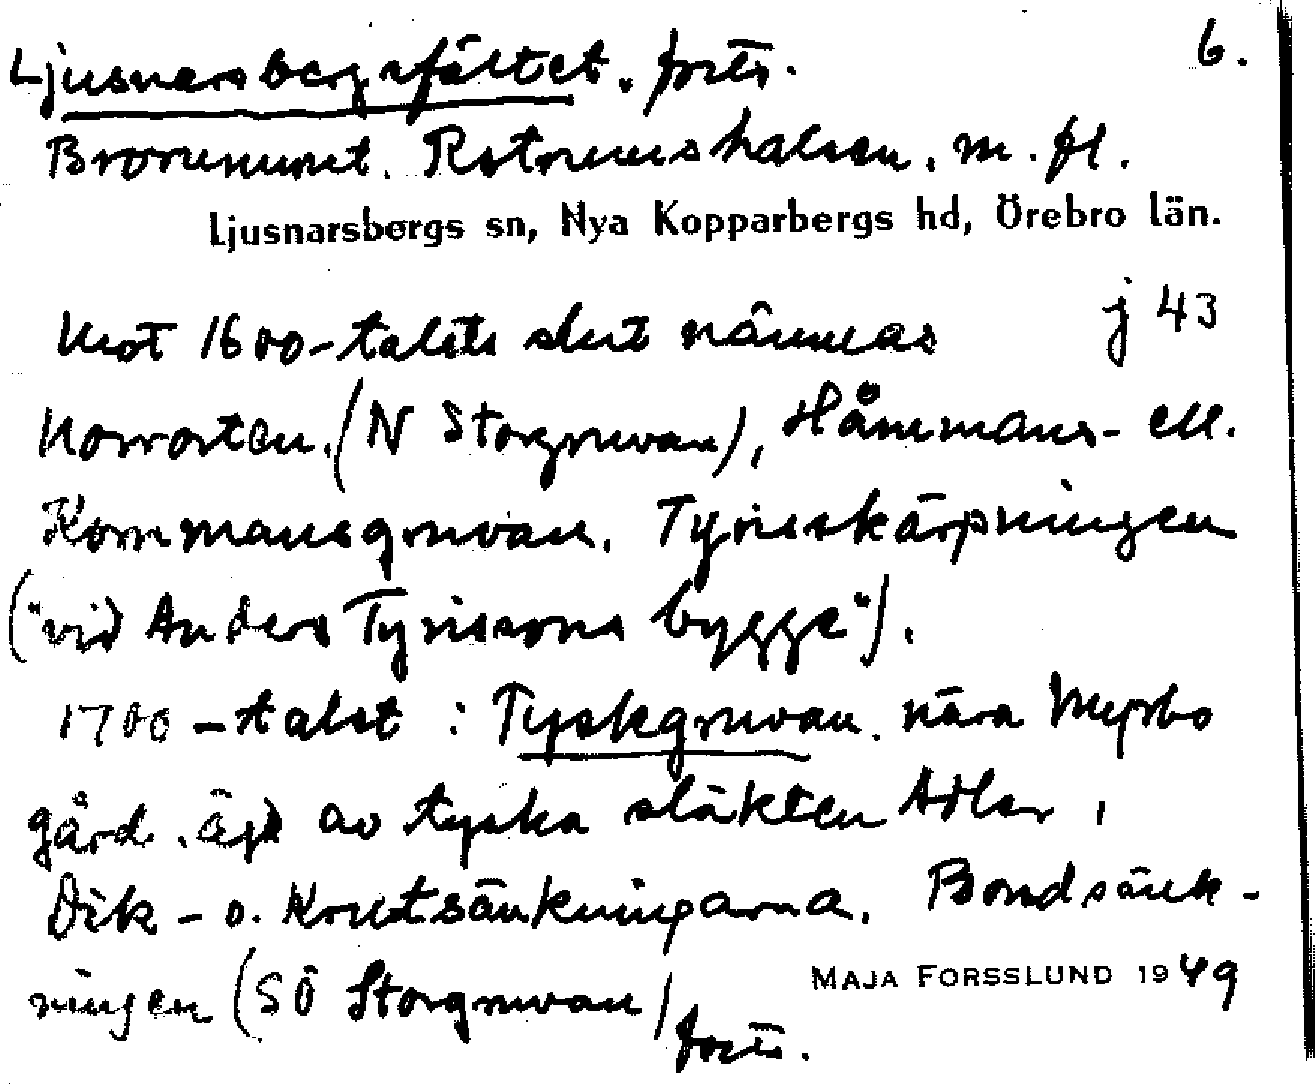 Ljusnarsbergsfältet. forts. 6.
m. fl.
Ljusnarsbergs sn, Nya Kopparbergs hd, Örebro län.
Mot 1600-talets slut nämnas j 43
Norrorten. (N Storgruvan), Håmmans- ell.
Kornmansgruvan. Tyrisskärpningen
("vid Anders Tyrissons bygge").
1700-talet: Tyskgruvan. nära Myrbo
gård. äg. av tyska släkten Adler,
Dik- o. Krutsänkningarna. Bondsänk-
ningen (SÖ Storgruvan)
MAJA FORSSLUND 1949
forts.